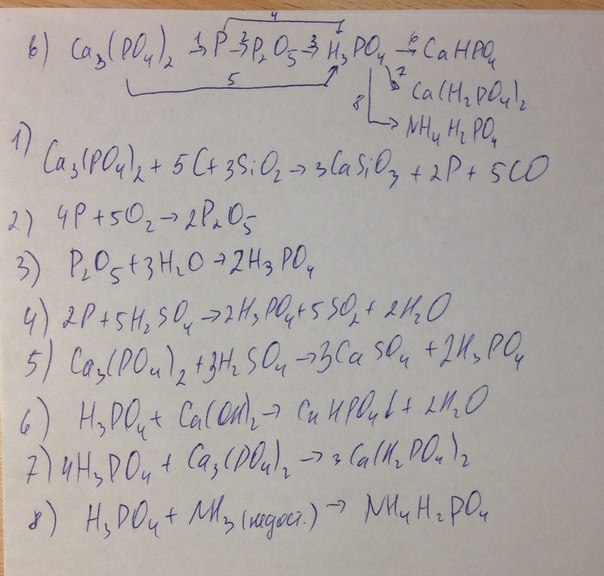 6) Ca3(PO4)2 1→ P 2→ P2O5 3→ H3PO4 6→ CaHPO4
4
5
7
Ca(H2PO4)2
8
NH4H2PO4
1) Ca3(PO4)2 + 5C + 3SiO2 → 3CaSiO3 + 2P + 5CO
2) 4P + 5O2 → 2P2O5
3) P2O5 + 3H2O → 2H3PO4
4) 2P + 5H2SO4 → 2H3PO4 + 5SO2 + 2H2O
5) Ca3(PO4)2 + 3H2SO4 → 3CaSO4 + 2H3PO4
6) H3PO4 + Ca(OH)2 → CaHPO4↓ + 2H2O
7) 4H3PO4 + Ca3(PO4)2 → 3Ca(H2PO4)2
8) H3PO4 + NH3 (недост.) → NH4H2PO4